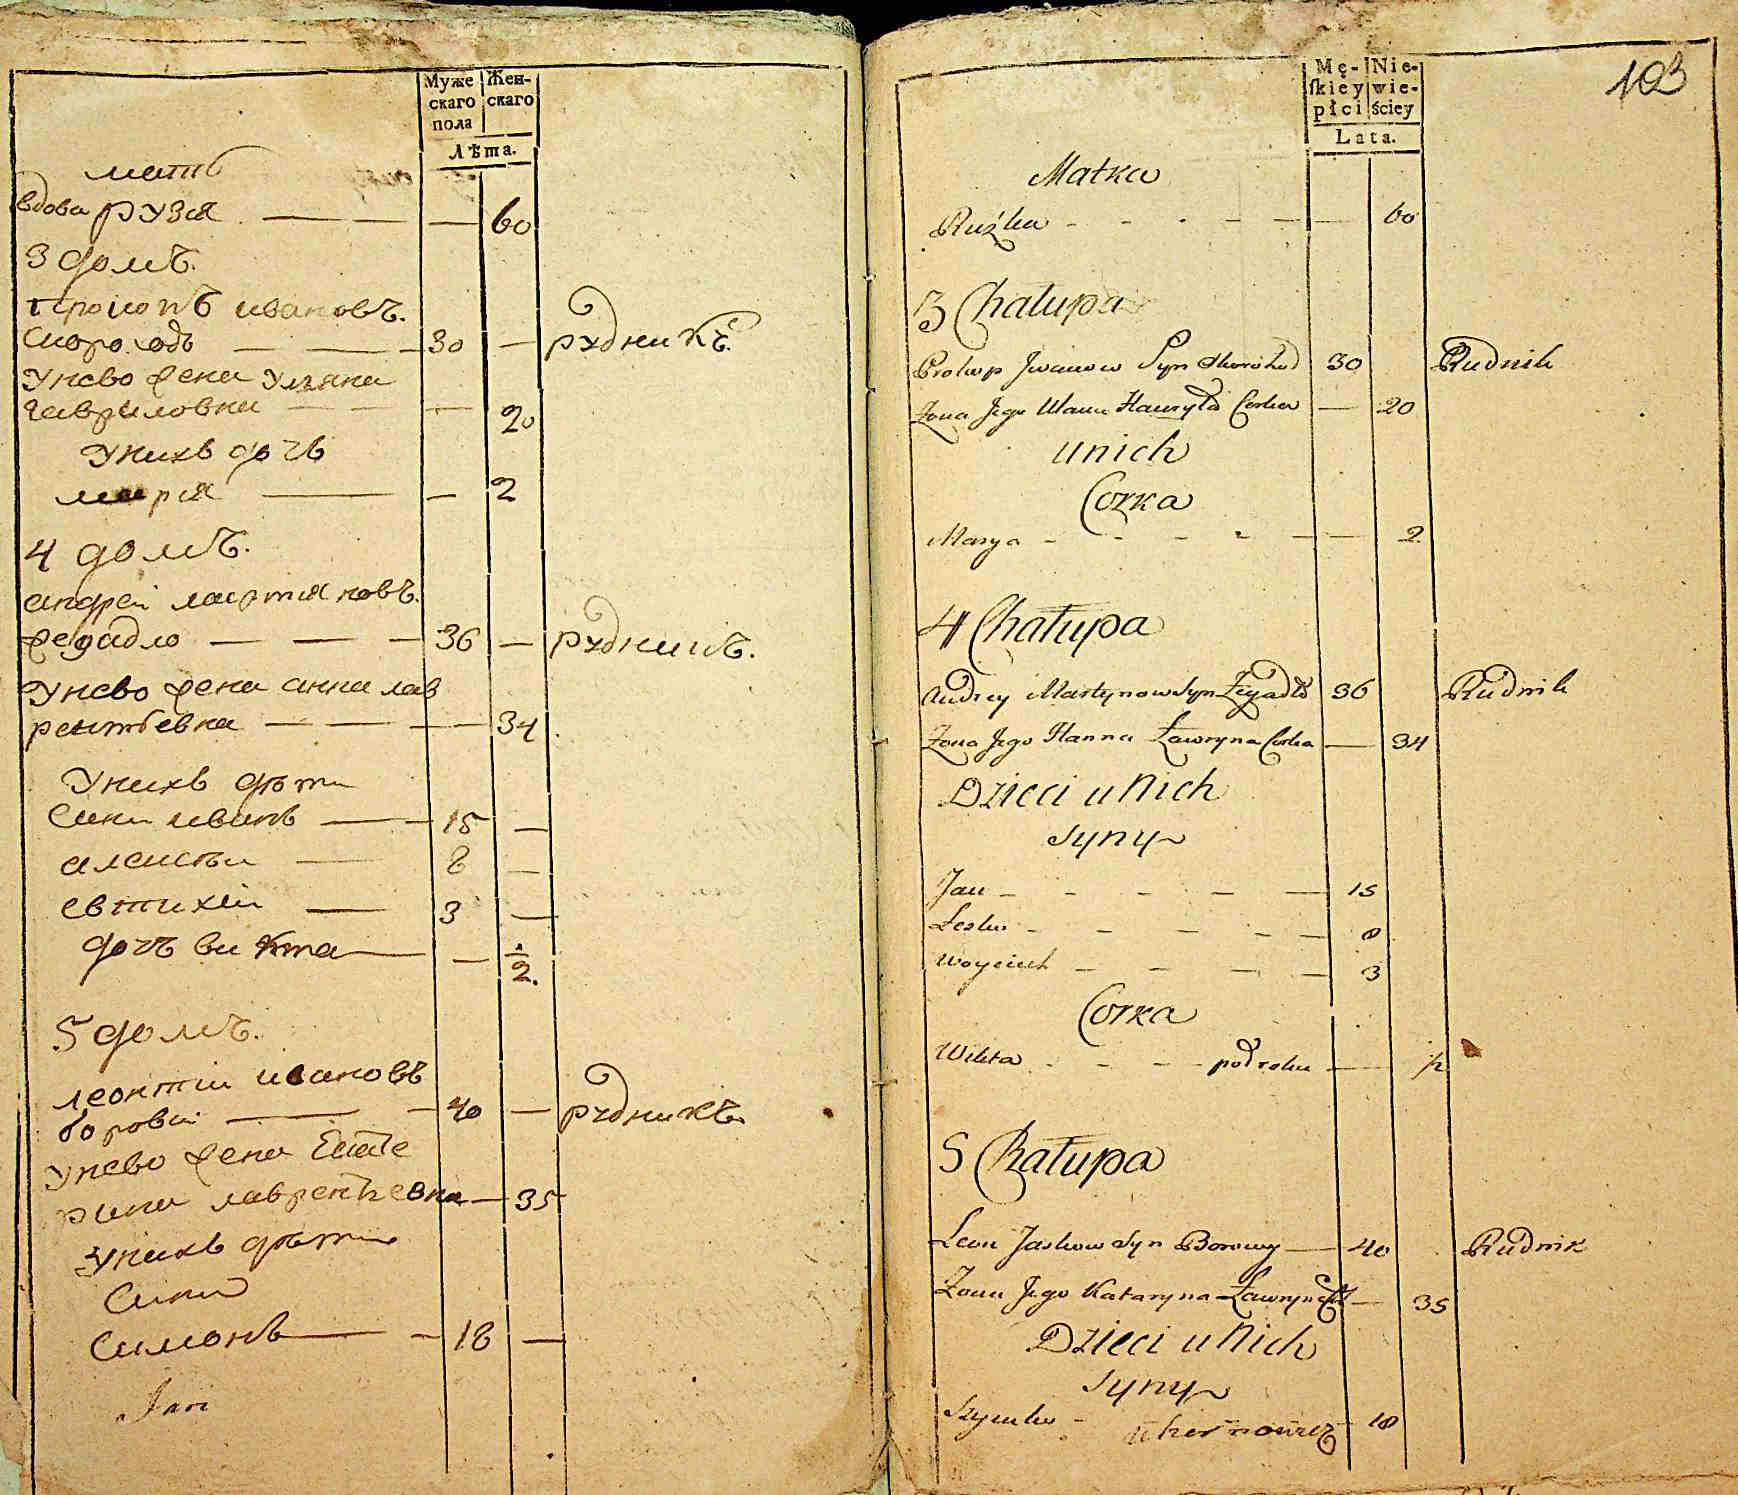 Муже
скаго
пола
Жен-
скаго
Лѣта.
мать
вдова рузя 60
3 домъ.
прокопъ ивановъ.
скороходъ 30 рудникъ.
унево жена уляна
гавриловна 20
унихъ дочь
марія 2
4 домъ.
андрей мартиновъ.
жегадло 36 рудникъ.
унево жена анна лав
рентьевна 34
унихъ дѣти
сини иванъ 15
алексѣи 8
евтихіи 3
дочь викта 1/2.
5 домъ.
леонтіи ивановъ
боровеи 40 рудникъ.
унево жена Екате
рина лаврентьевна 35
унихъ дѣти
сини
симонъ 18
Jan
103
Mę-
ſkiey
płci
Nie-
wie-
ściey
Lata.
Matka
Ruźka 60
3 Chałupa
Prokop Jwanow Syn Skorohod 30 Rudnik
Żona Jego Ulana Hawryła Corka 20
unich
Corka
Marya 2
4 Chałupa
Andrey Martynow Syn Żegadło 36 Rudnik
Żona Jego Hanna Ławryna Corka 34
Dzieci u Nich
synÿ
Jan 15
Lesko 8
Woyciech 3
Corka
Wikta pod roku 1/2
5 Chałupa
Leon Jaskow Syn Borowy 40 Rudnik
Żona Jego Kataryna Ławryna Corka 35
Dzieci u Nich
syny
Szymko 18